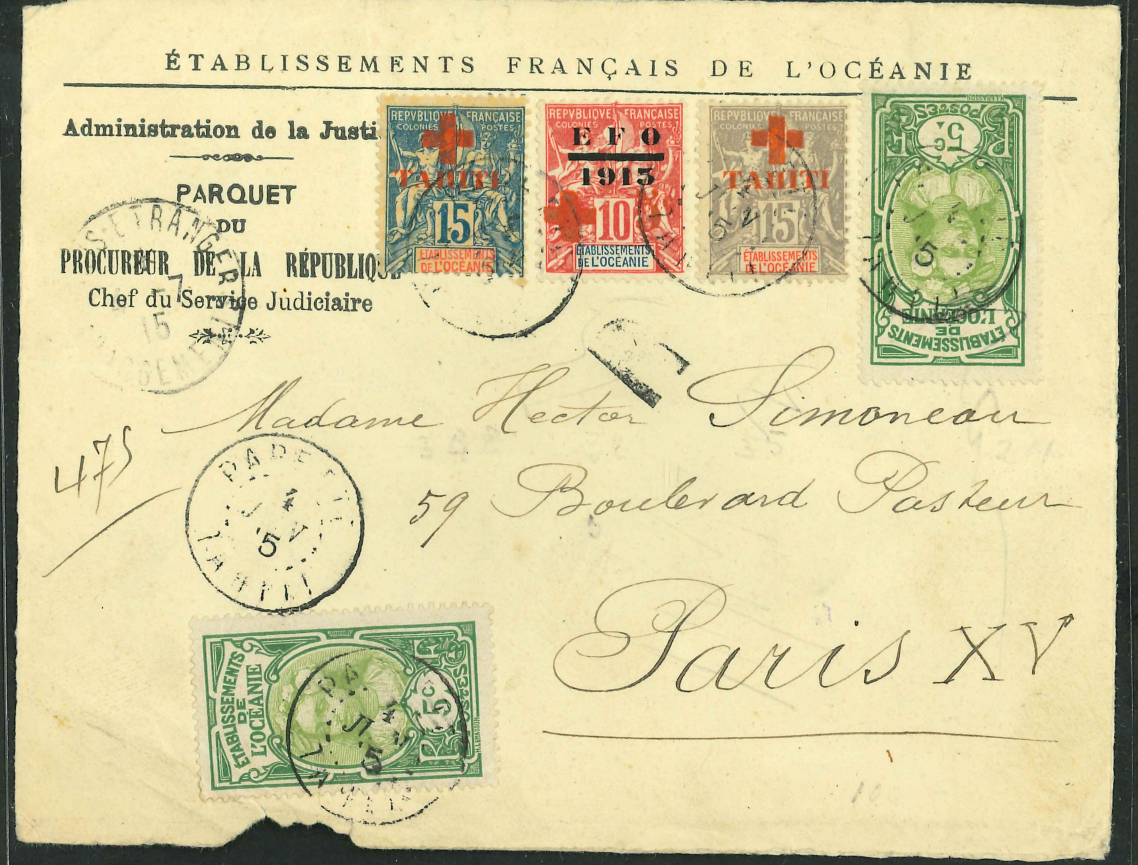 ÉTABLISSEMENTS FRANÇAIS DE L'OCÉANIE
Administration de la Justi
PARQUET
DU
PROCUREUR DE LA RÉPUBLIQUE
Chef du Service Judiciaire
REPVBLIQUE FRANÇAISE
COLONIES POSTES
TAHITI
15
ÉTABLISSEMENTS
DE L'OCÉANIE
REPVBLIQUE FRANÇAISE
COLONIES POSTES
E F O
1915
10
ÉTABLISSEMENTS
DE L'OCÉANIE
REPVBLIQUE FRANÇAISE
COLONIES POSTES
TAHITI
15
ÉTABLISSEMENTS
DE L'OCÉANIE
POSTES
5c
ÉTABLISSEMENTS
DE
L'OCÉANIE
ETRANGER
15
Madame Hector Simoneau
475
59 Boulevard Pasteur
Paris XV
PAPEETE
TAHITI
ÉTABLISSEMENTS
DE
L'OCÉANIE
5c